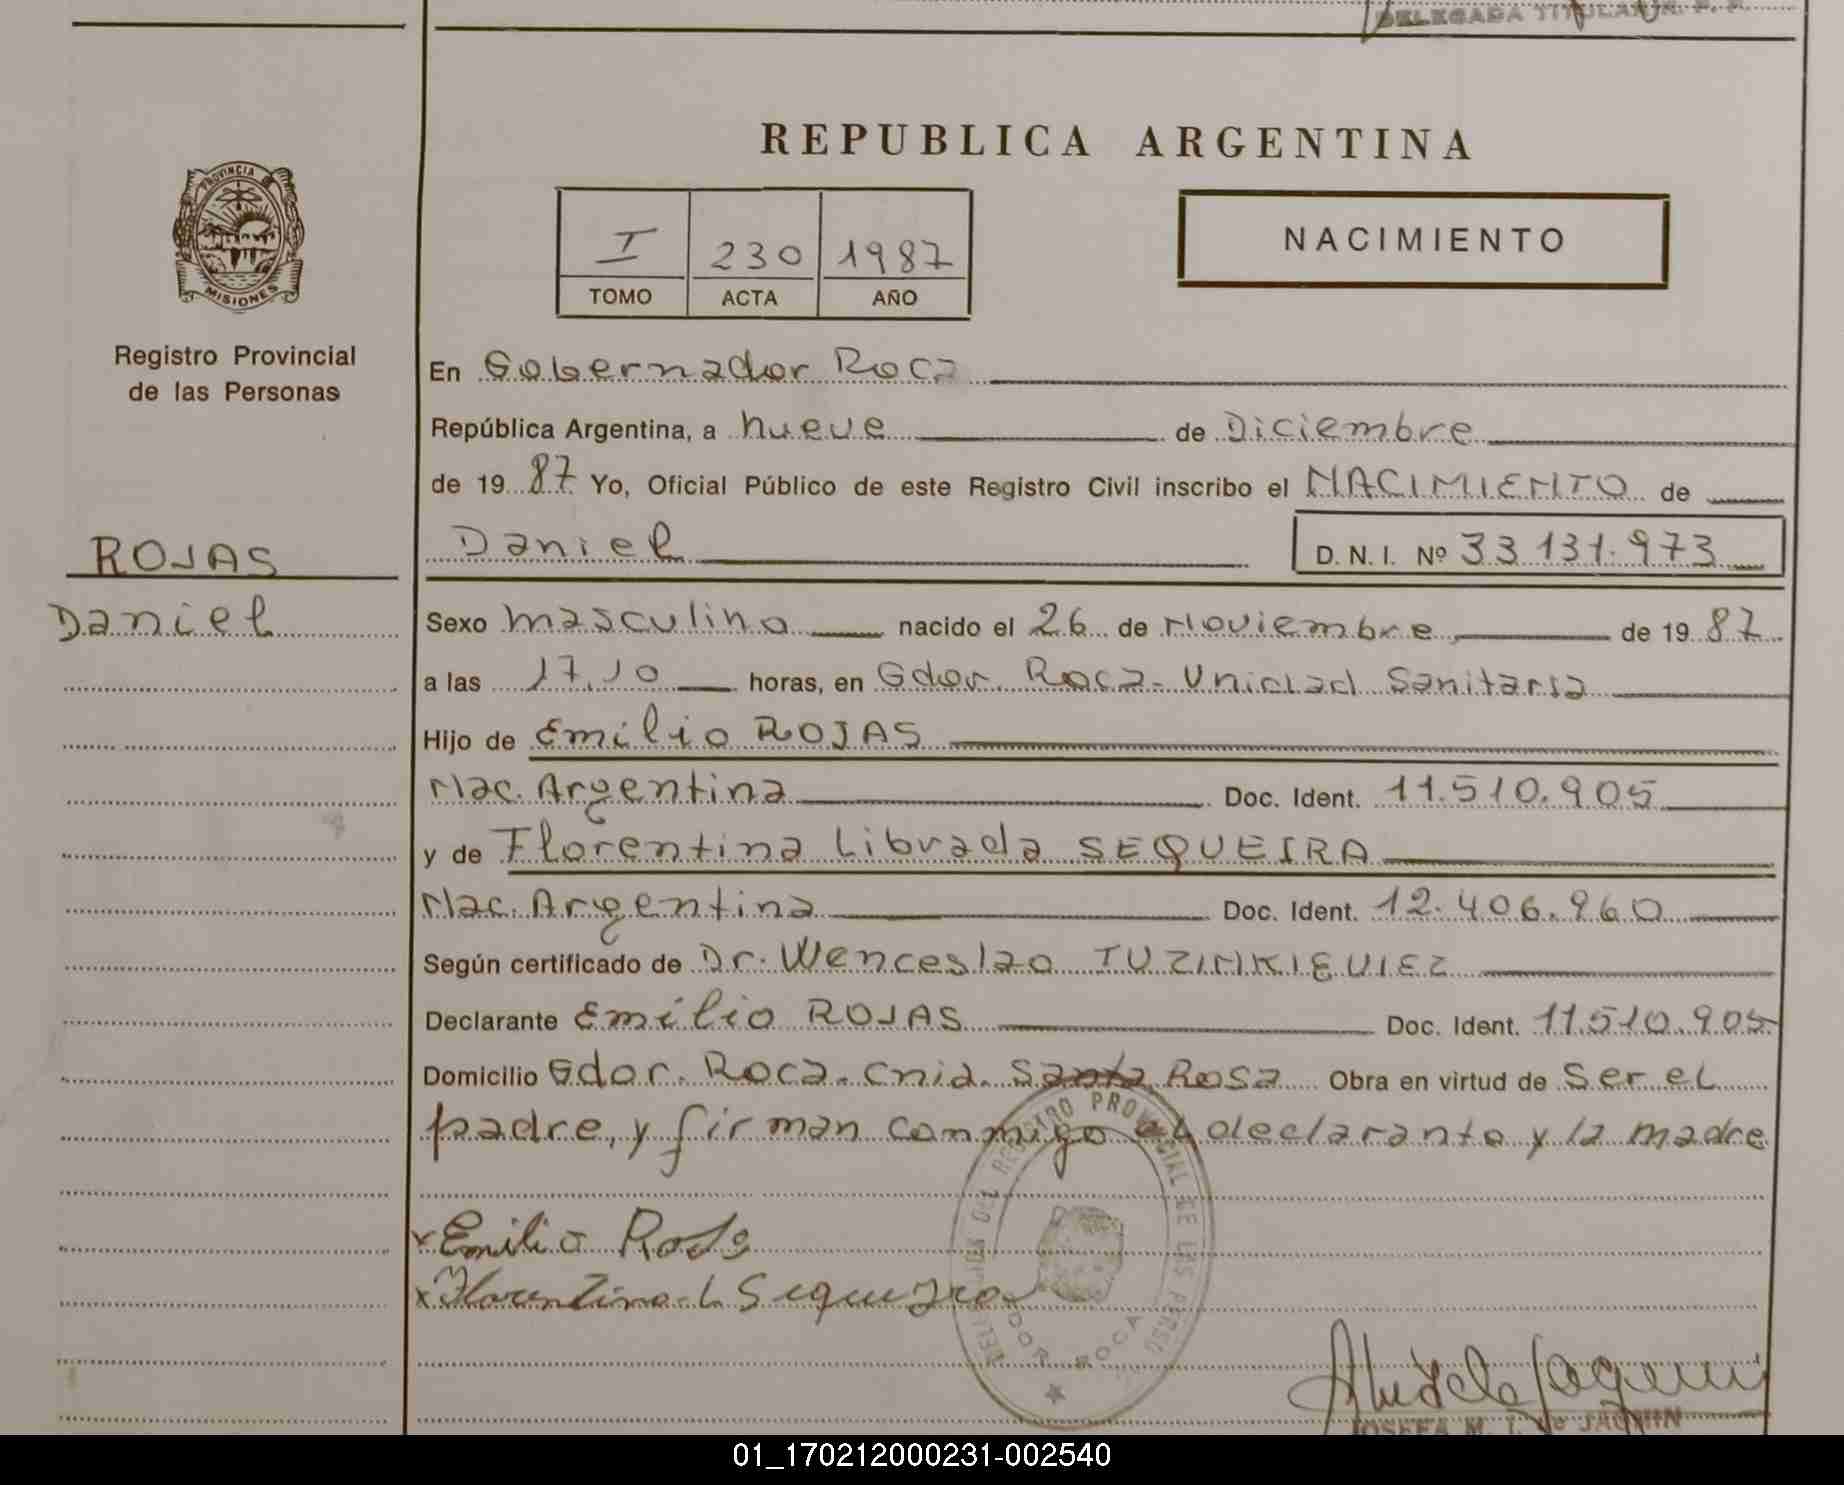 DELEGADA TITULAR R. P. P.
REPUBLICA ARGENTINA
PROVINCIA DE
MISIONES
I 230 1987
TOMO ACTA AÑO
NACIMIENTO
Registro Provincial
de las Personas
En Gobernador Roca
República Argentina, a nueve de Diciembre
de 19 87 Yo, Oficial Público de este Registro Civil inscribo el NACIMIENTO de
ROJAS
Daniel D. N. I. Nº 33.131.973
Daniel
Sexo masculino nacido el 26 de Noviembre de 19 87
a las 17,10 horas, en Gdor. Roca - Unidad Sanitaria
Hijo de Emilio ROJAS
Nac. Argentina Doc. Ident. 11.510.905
y de Florentina Librada SEQUEIRA
Nac. Argentina Doc. Ident. 12.406.960
Según certificado de Dr. Wenceslao
Declarante Emilio ROJAS Doc. Ident. 11.510.905
Domicilio Gdor. Roca - Cnia. Santa Rosa Obra en virtud de Ser el
padre, y firman conmigo el declarante y la madre
x Emilio Rojas
x Florentina L Sequeira
DELEGACION DEL REGISTRO PROVINCIAL DE LAS PERSONAS
GDOR ROCA
JOSEFA M. T. de JACQUIN
01_170212000231-002540